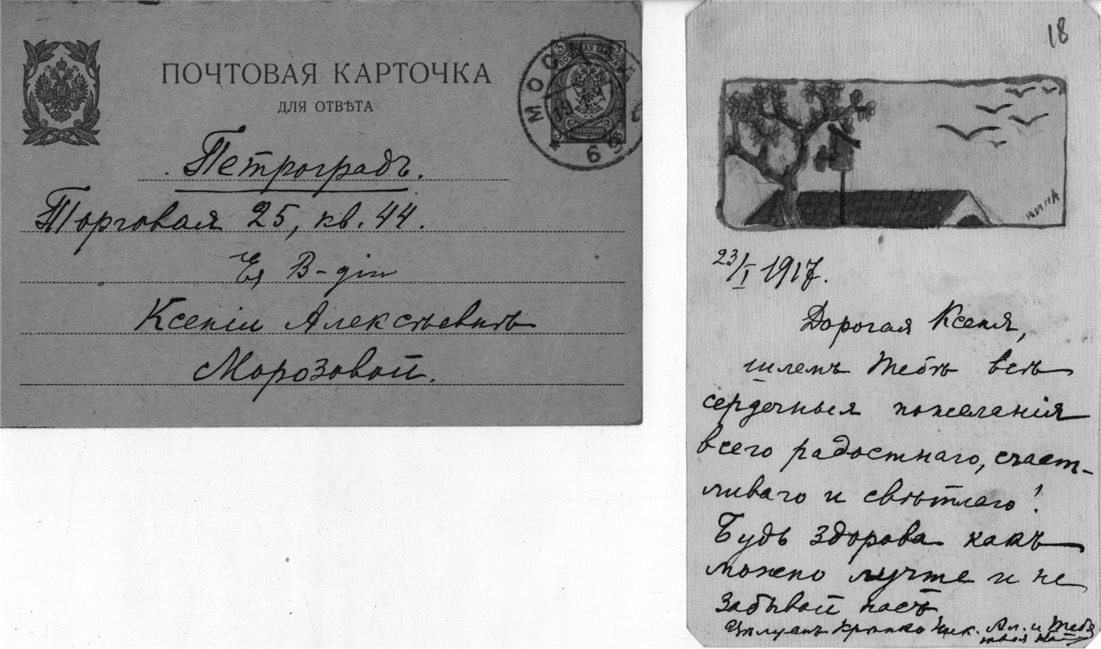 ПОЧТОВАЯ КАРТОЧКА
ДЛЯ ОТВѢТА
Петроградъ.
Торговая 25, кв. 44.
Ея В-дію
Ксеніи Алексѣевнѣ
Морозовой.
18
НИНА
23/I 1917.
Дорогая Ксеня,
шлемъ Тебѣ всѣ
сердечныя пожеланія
всего радостнаго, счаст-
ливаго и свѣтлаго!
Будь здорова какъ
можно лучше и не
забывай насъ
Цѣлуемъ крѣпко Ник. Ал. и Тебя
твоя